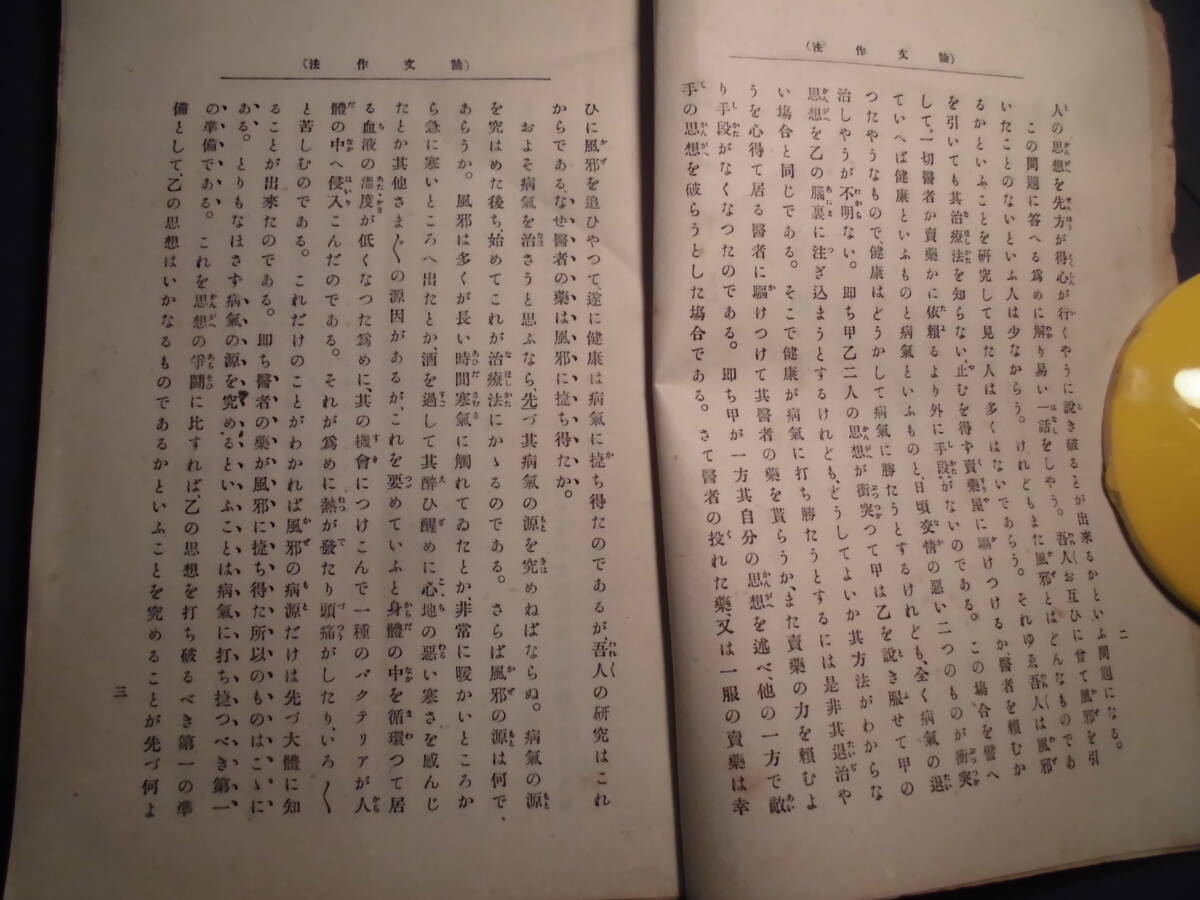 (論文作法)
二
人の思想を先方が得心が行くやうに說き破ることが出來るかといふ問題になる。
この問題に答へる爲めに解り易い一話をしやう。吾人お互ひに曾て風邪を引
いたことのないといふ人は少なからう。けれどもまた風邪とはどんなものであ
るかといふことを研究して見た人は多くはないであらう。それゆゑ吾人は風邪
を引いても其治療法を知らない、止むを得ず賣藥屋に驅けつけるか、醫者を賴むか
して、一切醫者か賣藥かに依賴るより外に手段がないのである。この塲合を譬へ
ていへば健康といふものと病氣といふものと、日頃交情の惡い二つのものが衝突
つたやうなもので、健康はどうかして病氣に勝たうとするけれども、全く病氣の退
治しやうが不明ない。即ち甲乙二人の思想が衝突つて甲は乙を說き服せて甲の
思想を乙の腦裏に注ぎ込まうとするけれども、どうしてよいか其方法がわからな
い塲合と同じである。そこで健康が病氣に打ち勝たうとするには是非其退治や
うを心得て居る醫者に驅けつけて其醫者の藥を貰らうか、また賣藥の力を賴むよ
り手段がなくなつたのである。即ち甲が一方其自分の思想を述べ、他の一方で敵
手の思想を破らうとした塲合である。さて醫者の投れた藥、又は一服の賣藥は幸
(論文作法)
ひに風邪を追ひやつて、遂に健康は病氣に捷ち得たのであるが、吾人の硏究はこれ
からである、なせ醫者の藥は風邪に捷ち得たか。
およそ病氣を治さうと思ふなら、先づ其病氣の源を究めねばならぬ。病氣の源
を究はめた後ち、始めてこれが治療法にかゝるのである。さらば風邪の源は何で、
あらうか。風邪は多くが長い時間寒氣に觸れてゐたとか、非常に暖かいところか
ら急に寒いところへ出たとか、酒を過して其醉ひ醒めに心地の惡い寒さを感んじ
たとか其他さま〴〵の源因があるが、これを要めていふと身體の中を循環つて居
る血液の溫度が低くなつた爲めに、其の機會につけこんで一種のバクテリアが人
體の中へ侵入こんだのである。それが爲めに熱が發たり頭痛がしたり、いろ〳〵
と苦しむのである。これだけのことがわかれば風邪の病源だけは先づ大體に知
ることが出來たのである。即ち醫者の藥が風邪に捷ち得た所以のものはこゝに
ある。とりもなほさず病氣の源を究めるといふことは病氣に打ち捷つべき第一
の準備である。これを思想の爭鬪に比すれば、乙の思想を打ち破るべき第一の準
備として、乙の思想はいかなるものであるかといふことを究めることが先づ何よ
三